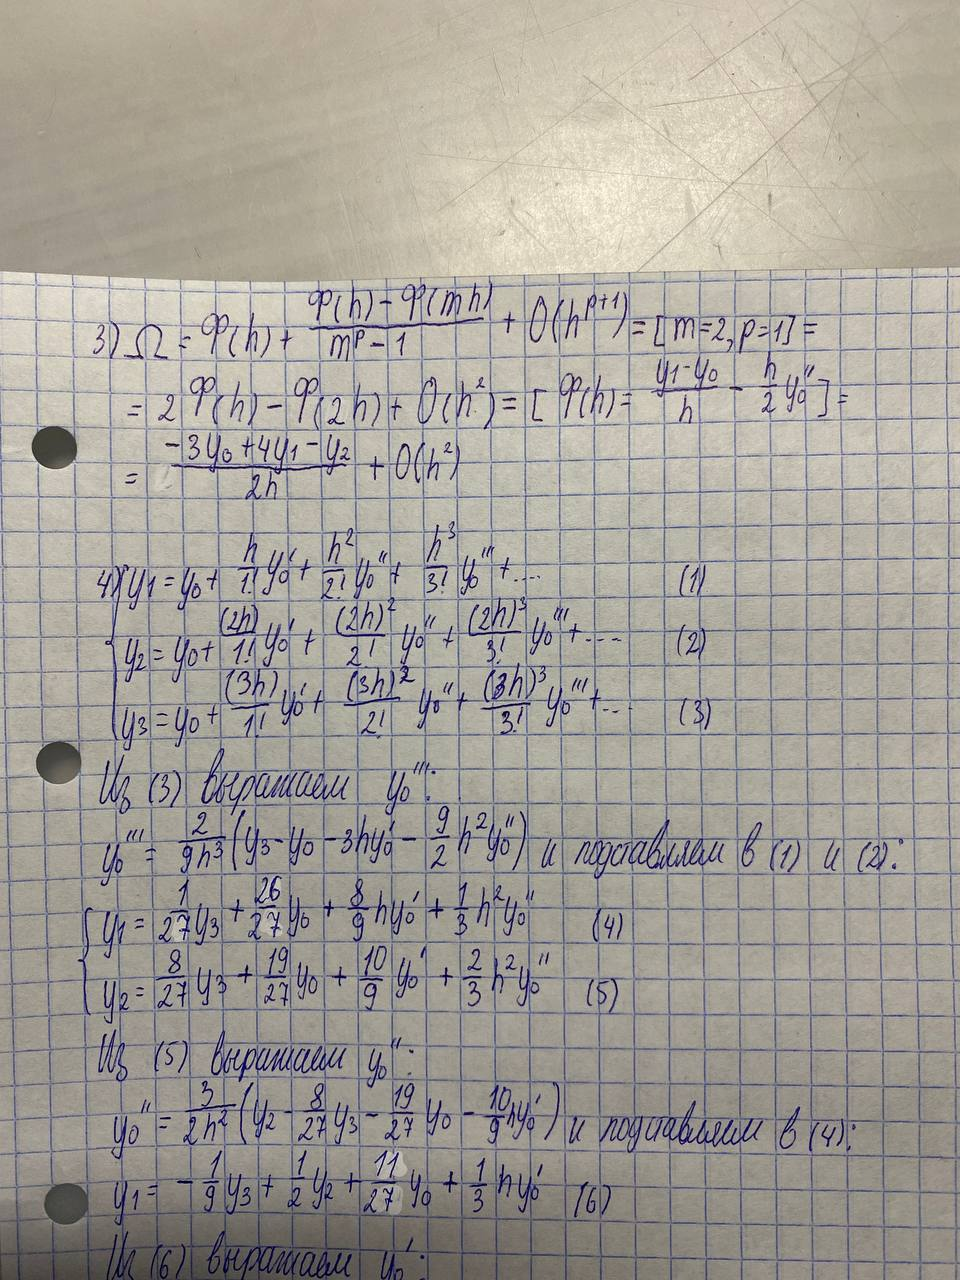 3) Ω = Φ(h) + (Φ(h) - Φ(mh))/(m^p - 1) + O(h^{p+1}) = [m=2, p=1] =
= 2Φ(h) - Φ(2h) + O(h²) = [Φ(h) = (y₁-y₀)/h - h/2 y₀''] =
= (-3y₀ + 4y₁ - y₂)/2h + O(h²)
4) { y₁ = y₀ + h/1! y₀' + h²/2! y₀'' + h³/3! y₀''' + .... (1)
y₂ = y₀ + (2h)/1! y₀' + (2h)²/2! y₀'' + (2h)³/3! y₀''' + .... (2)
y₃ = y₀ + (3h)/1! y₀' + (3h)²/2! y₀'' + (3h)³/3! y₀''' + ... (3)
Из (3) выражаем y₀''':
y₀''' = 2/9h³ (y₃ - y₀ - 3hy₀' - 9/2 h² y₀'') и подставляем в (1) и (2):
{ y₁ = 1/27 y₃ + 26/27 y₀ + 8/9 hy₀' + 1/3 h² y₀'' (4)
y₂ = 8/27 y₃ + 19/27 y₀ + 10/9 y₀' + 2/3 h² y₀'' (5)
Из (5) выражаем y₀'':
y₀'' = 3/2h² (y₂ - 8/27 y₃ - 19/27 y₀ - 10/9 hy₀') и подставляем в (4):
y₁ = -1/9 y₃ + 1/2 y₂ + 11/27 y₀ + 1/3 hy₀' (6)
Из (6) выражаем y₀':